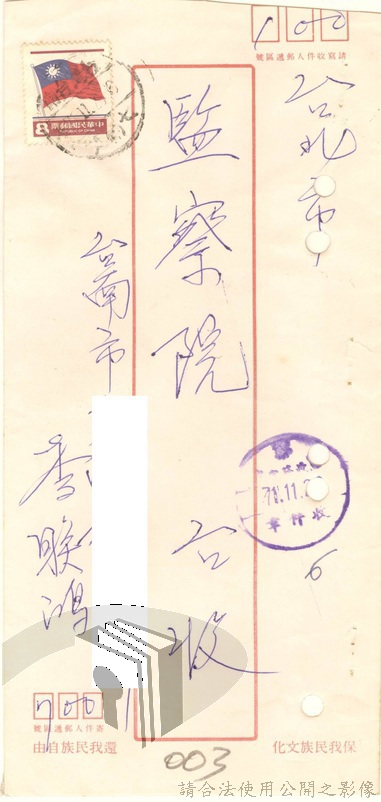 100
請寫收件人郵遞區號
台北市
監察院 台收
台南市
李聯鴻
700
寄件人郵遞區號
保我民族文化
還我民族自由
中華民國郵票
REPUBLIC OF CHINA
8
71.11.2
收件章
6
003
請合法使用公開之影像